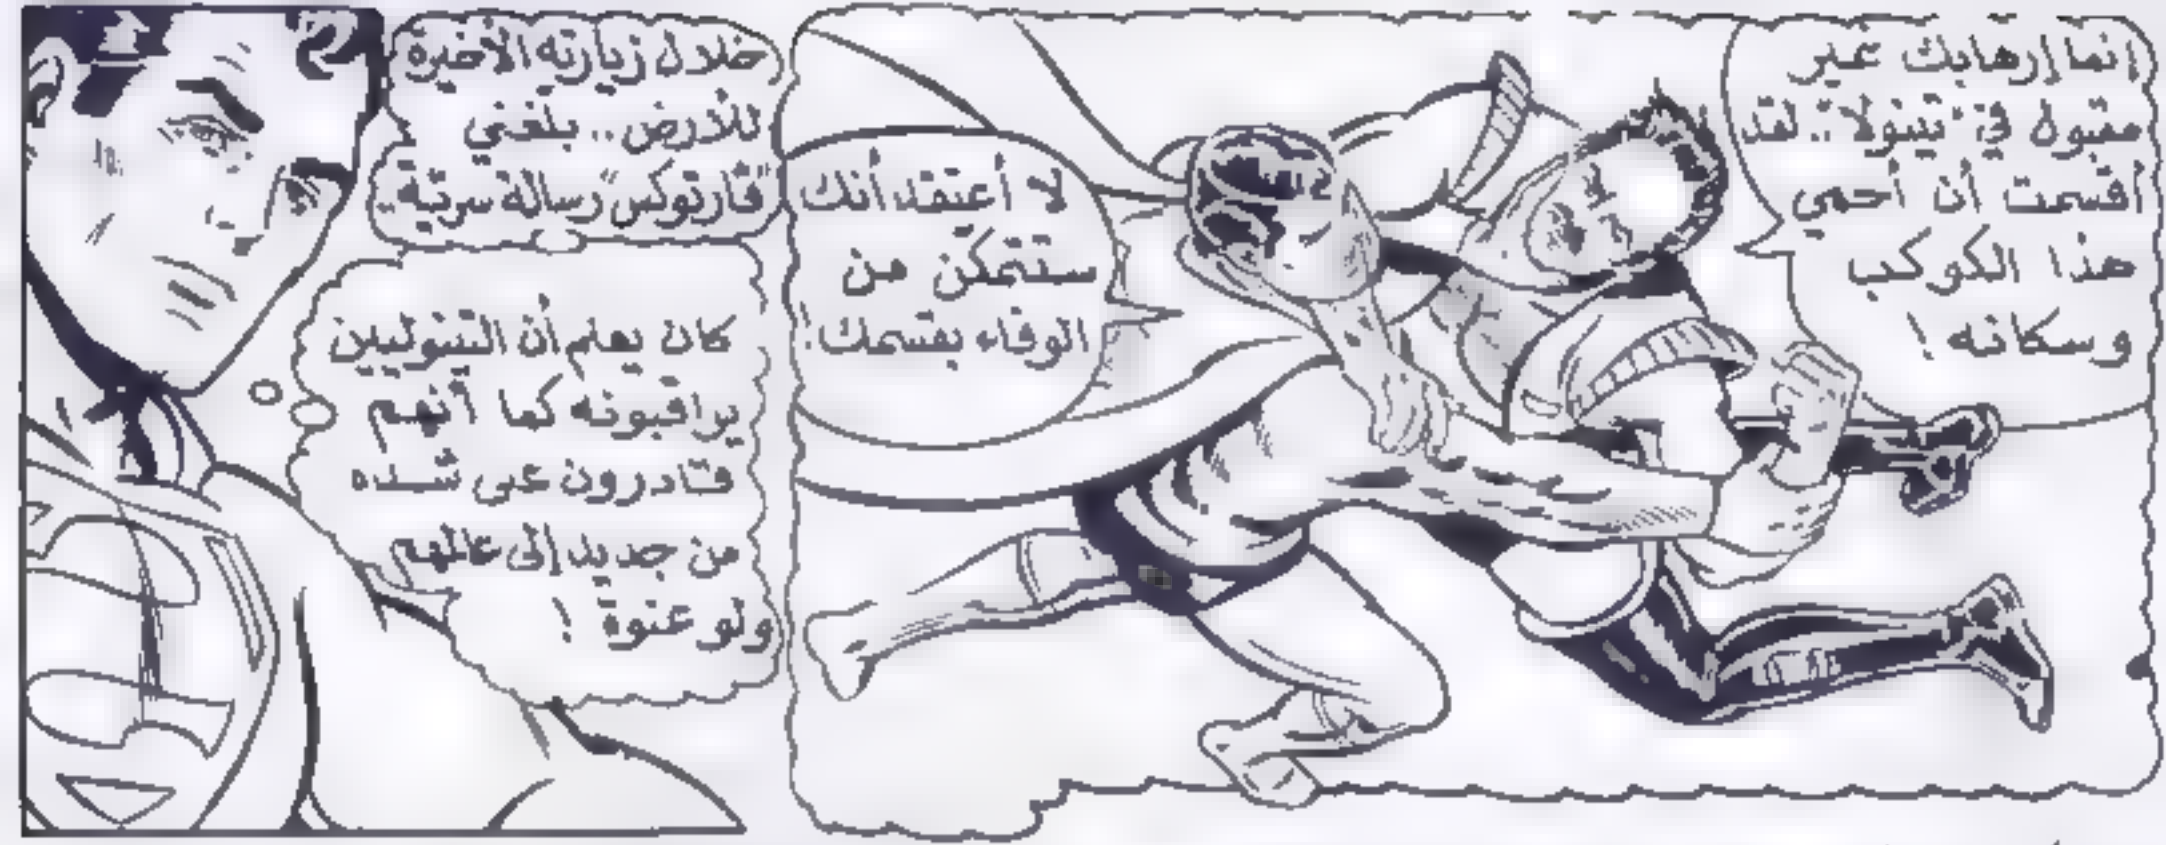 إنما إرهابك غير
مقبول في "تينولا".. لقد
أقسمت أن أحمي
هذا الكوكب
وسكانه !
لا أعتقد أنك
ستتمكّن من
الوفاء بقسمك !
خلال زيارته الأخيرة
للأرض.. بلغني
"فارتوكس" رسالة سرّية..
كان يعلم أن التينوليين
يراقبونه كما أنهم
قادرون على شده
من جديد إلى عالمهم
ولو عنوة !